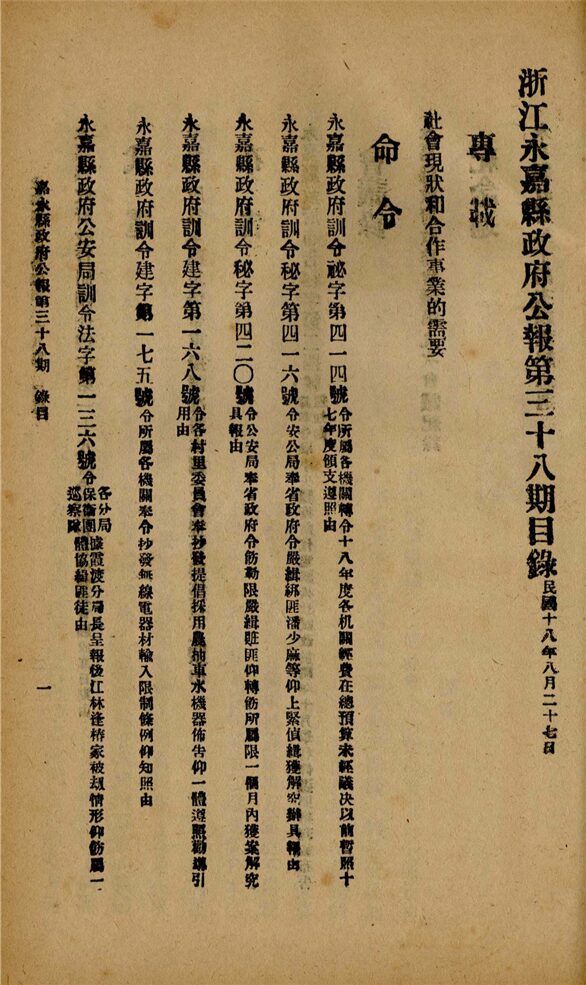 浙江永嘉縣政府公報第三十八期目錄 民國十八年八月二十七日
專載
社會現狀和合作事業的需要
命令
永嘉縣政府訓令祕字第四一四號 令所屬各機關轉令十八年度各机關經費在總預算未經議决以前暫照十
七年度領支遵照由
永嘉縣政府訓令秘字第四一六號 令安公局奉省政府令嚴緝綁匪潘少麻等仰上緊偵緝獲解究辦具報由
永嘉縣政府訓令秘字第四二〇號 令公安局奉省政府令飭勒限嚴緝賍匪仰轉飭所屬限一個月內獲案解究
具報由
永嘉縣政府訓令建字第一六八號 令各村里委員會奉抄發提倡採用農抽車水機器佈告仰一體遵照勸導引
用由
永嘉縣政府訓令建字第一七五號 令所屬各機關奉令抄發無線電器材輸入限制條例仰知照由
永嘉縣政府公安局訓令法字第一三六號 令
各分局
保衛團
巡察隊
據霞渡分局長呈報後江林逢椿家被刼情形仰飭屬一
體協緝匪徒由
嘉永縣政府公報第三十八期 錄目
一